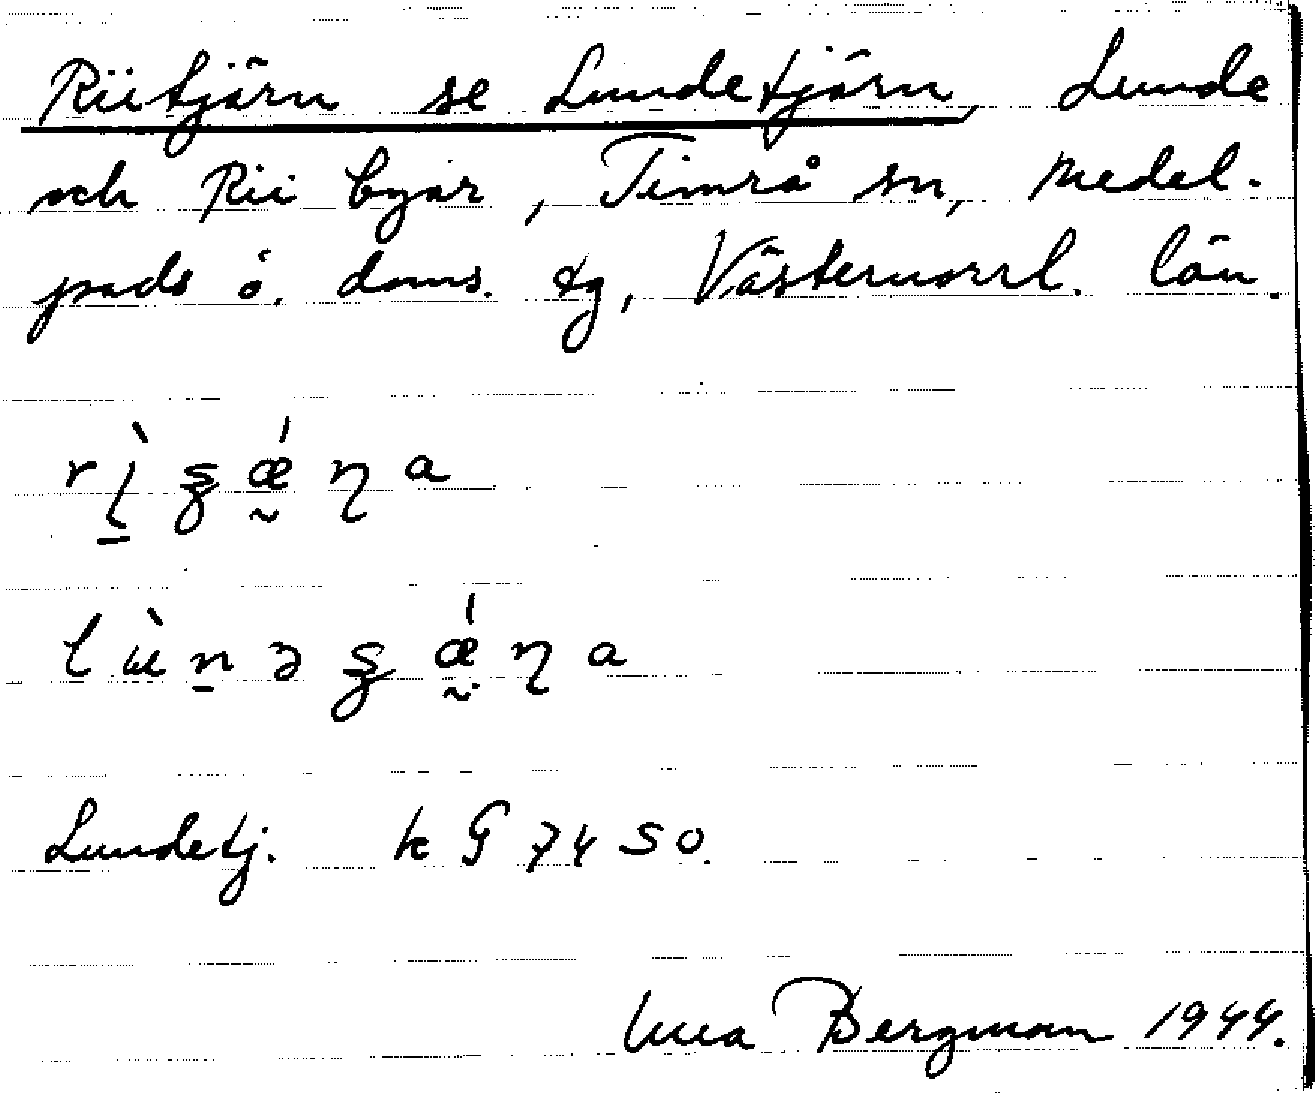 Riitjärn se Lundetjärn, Lunde
och Rii byar, Timrå sn, Medel-
pads ö. doms. tg, Västernorrl. län.
Lundetj. k G 7450.
Bergman 1944.